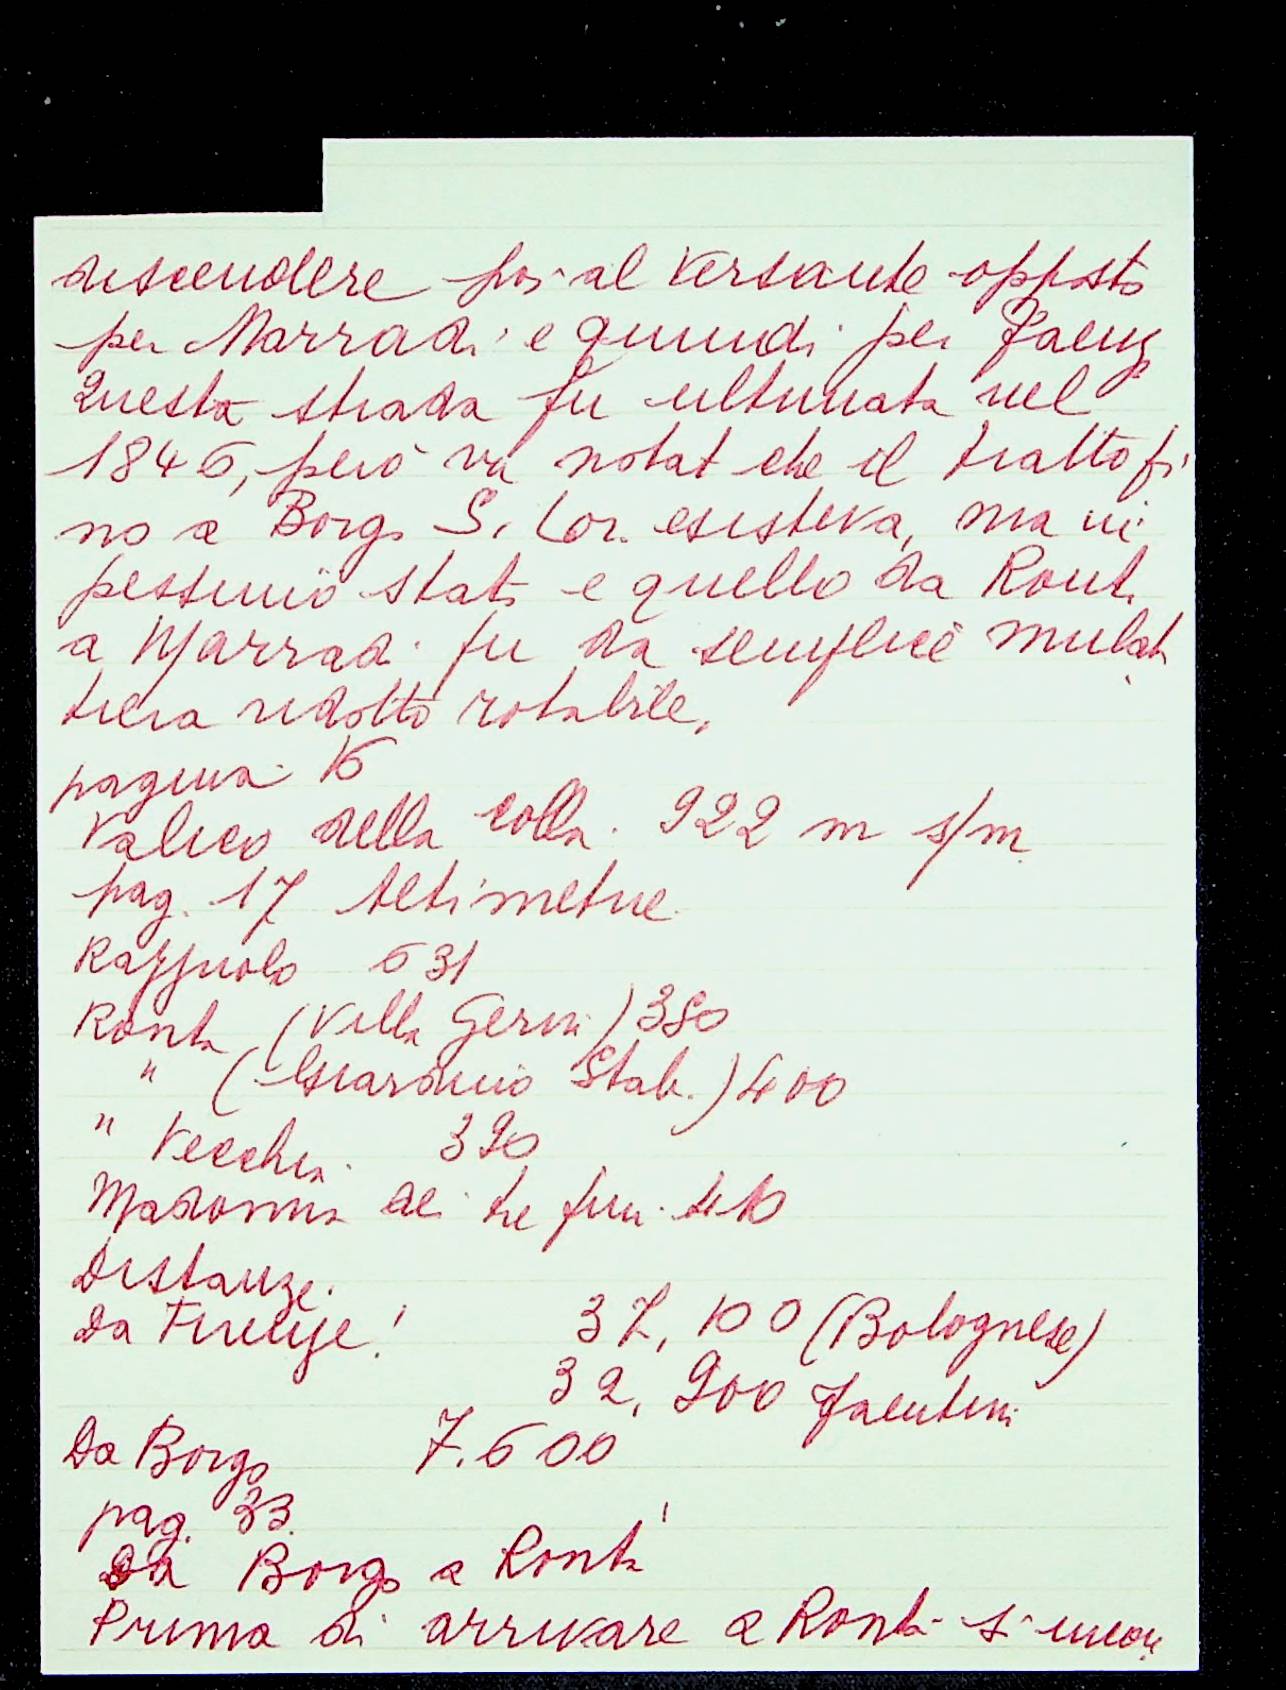 discendere poi al versante opposto
per Marradi e quindi per Faenz
Questa strada fu ultimata nel
1846, però va notat che il tratto fi
no a Borgo S. Lor. esisteva, ma in
pessimo stato e quello da Ronta
a Marradi fu da semplice mulat
tiera ridotto rotabile,
pagina 16
Valico della colla. 922 m s/m
pag. 17 Altimetrie
Razzuolo 631
Ronta (Villa Gerini) 380
" (Giardino Stab.) 400
" Vecchia. 390
Madonna dei tre fiumi 410
Distanze.
Da Firenze! 37,100 (Bolognese)
32,900 Faentina
Da Borgo 7.600
pag. 33.
Da Borgo a Ronta
Prima di arrivare a Ronta si incon